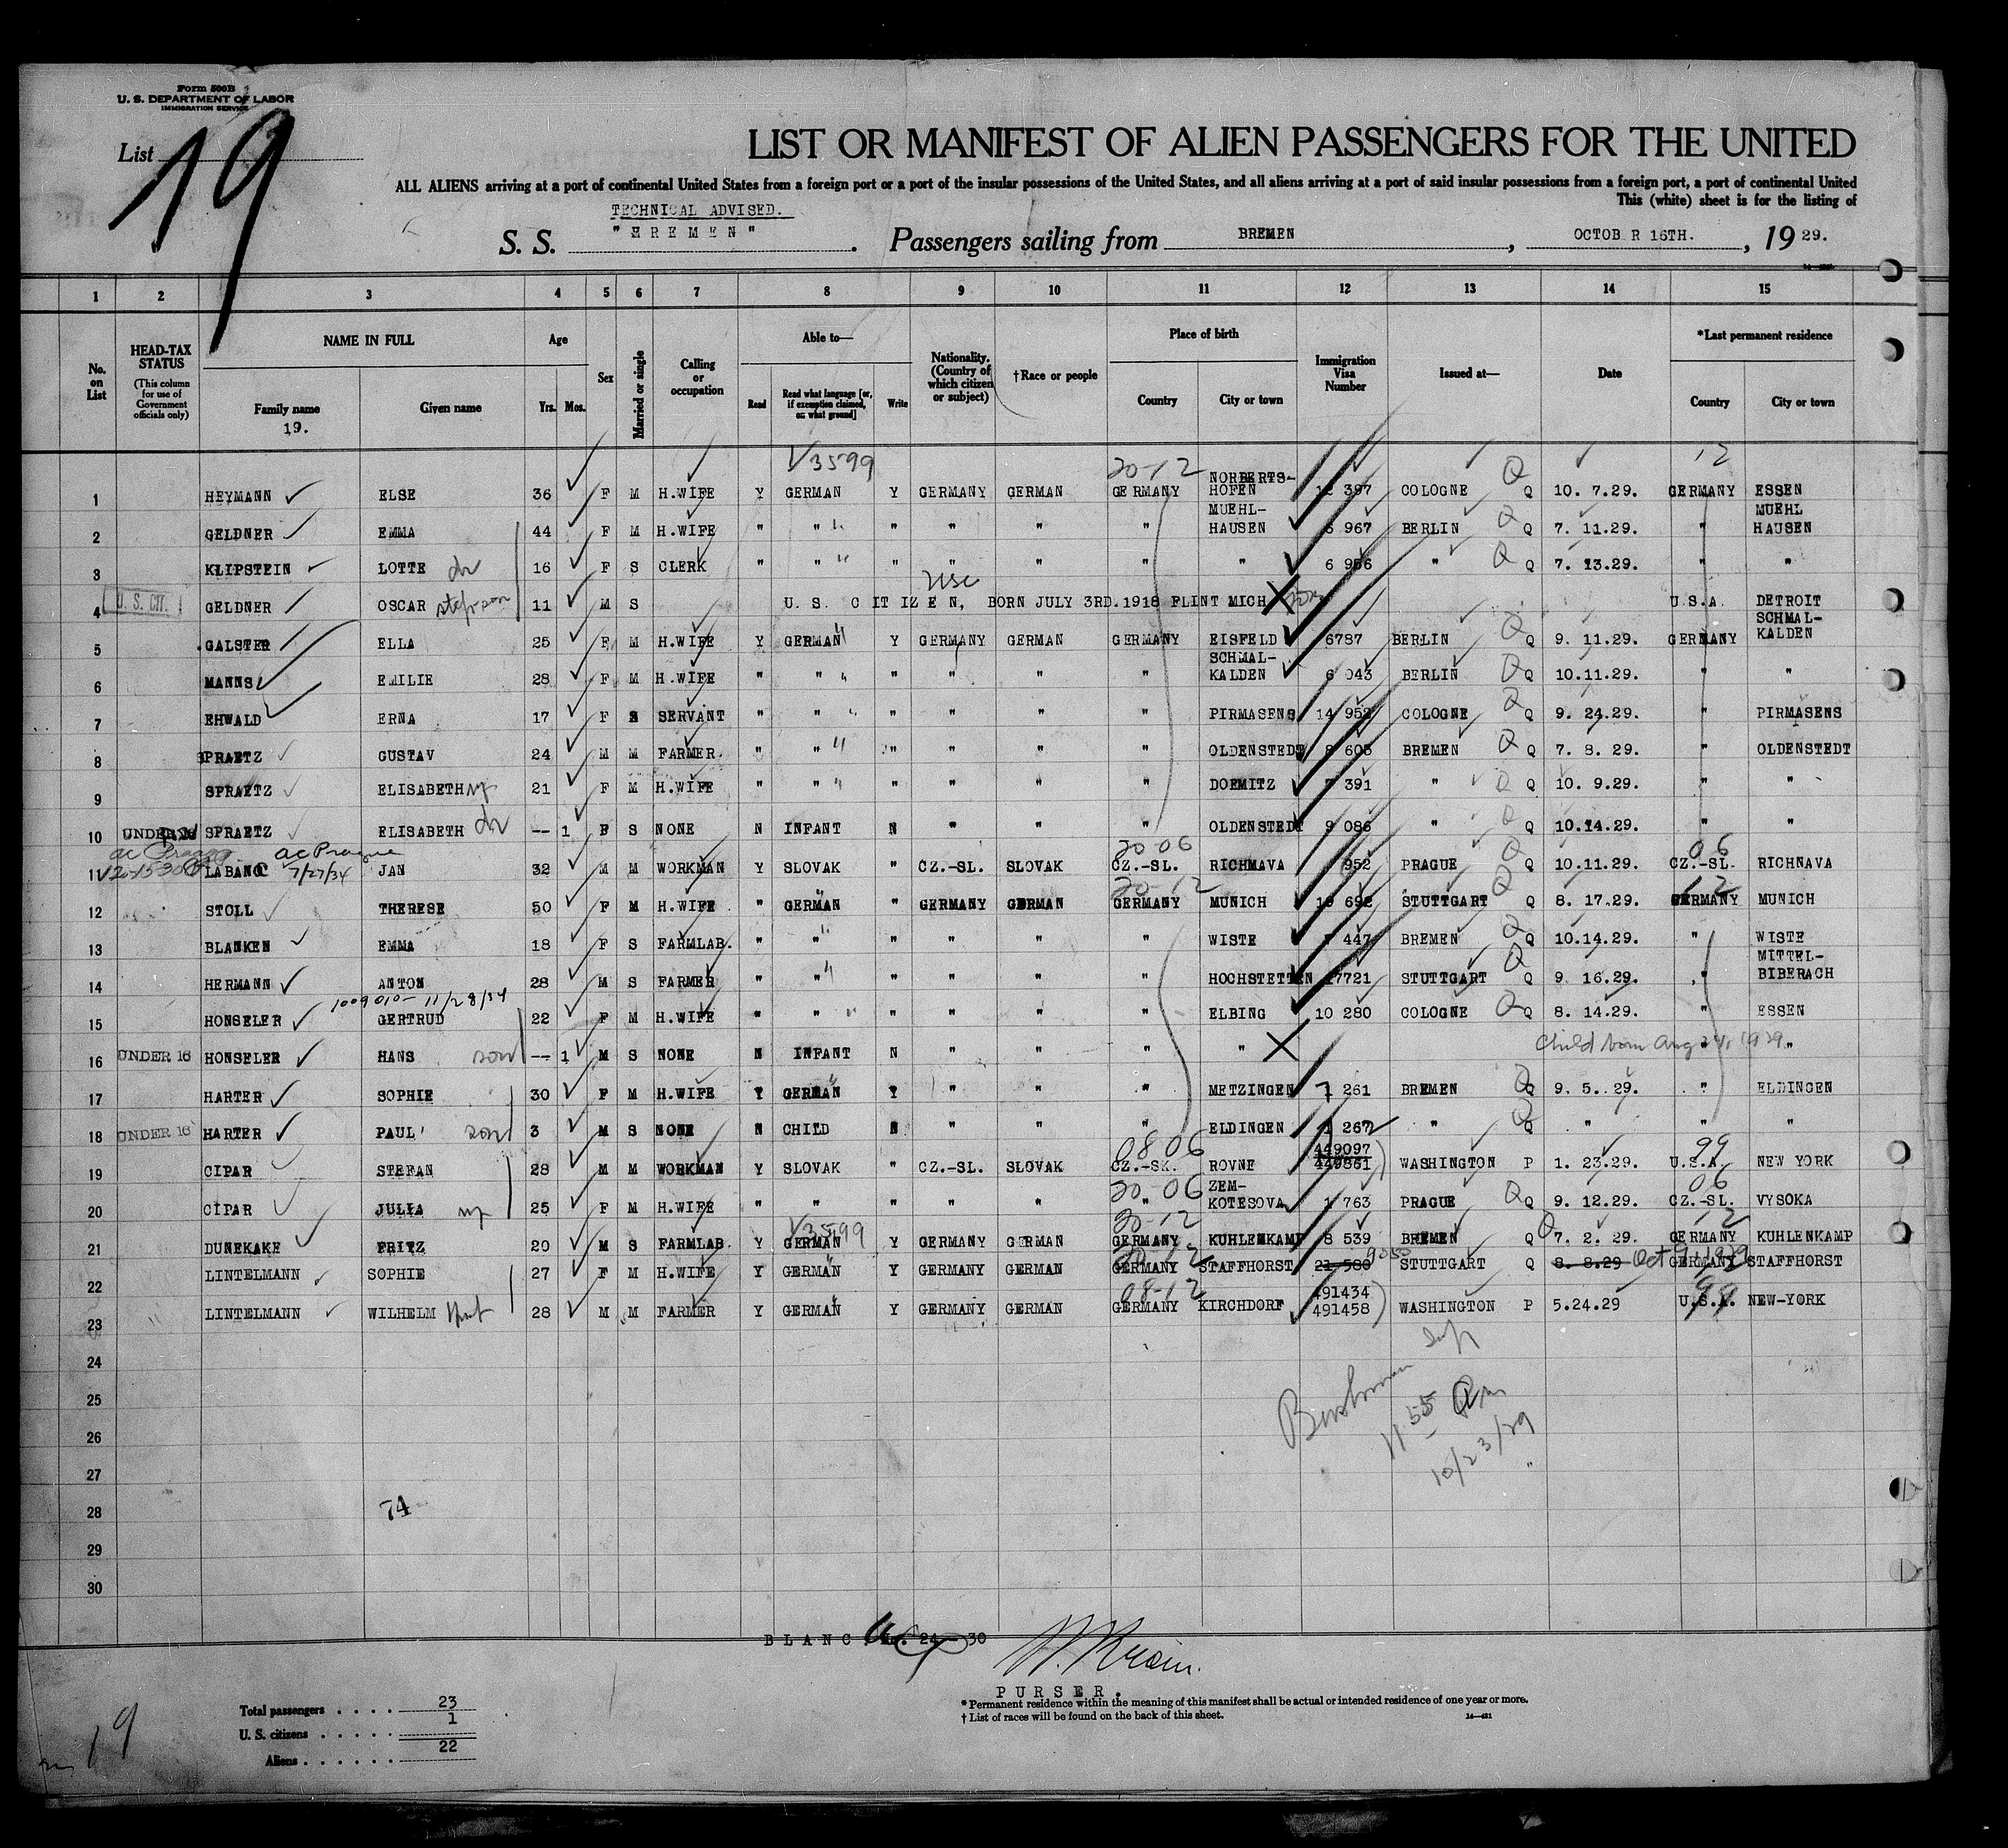 Form 500B
U. S. DEPARTMENT OF LABOR
IMMIGRATION SERVICE
List 19
LIST OR MANIFEST OF ALIEN PASSENGERS FOR THE UNITED
ALL ALIENS arriving at a port of continental United States from a foreign port or a port of the insular possessions of the United States, and all aliens arriving at a port of said insular possessions from a foreign port, a port of continental United
This (white) sheet is for the listing of
TECHNICAL ADVISED.
S. S. "BREMEN". Passengers sailing from BREMEN, OCTOB R 16TH., 19 29.
1 2 3 4 5 6 7 8 9 10 11 12 13 14 15
No. on List
HEAD-TAX STATUS (This column for use of Government officials only)
NAME IN FULL
Family name
19.
Given name
Age
Yrs. Mos.
Sex
Married or single
Calling or occupation
Able to—
Read
Read what language [or, if exemption claimed, on what ground]
Write
Nationality. (Country of which citizen or subject)
†Race or people
Place of birth
Country
City or town
Immigration Visa Number
Issued at—
Date
*Last permanent residence
Country
City or town
V3599 20-12 12
1 HEYMANN ELSE 36 F M H.WIFE Y GERMAN Y GERMANY GERMAN GERMANY NORBERTS-HOFEN 397 COLOGNE Q 10. 7.29. GERMANY ESSEN
2 GELDNER EMMA 44 F M H.WIFE " " " " " " MUEHL-HAUSEN 6 967 BERLIN Q 7. 11.29. " MUEHL HAUSEN
3 KLIPSTEIN LOTTE dr 16 F S CLERK " " " " " " " 6 956 " Q 7. 13.29. " "
U. S. CIT. usc
4 GELDNER OSCAR stepson 11 M S U. S. C IT IZ E N, BORN JULY 3RD.1918 FLINT MICH U.S.A. DETROIT
5 GALSTER ELLA 25 F M H.WIFE Y GERMAN Y GERMANY GERMAN GERMANY EISFELD 6787 BERLIN Q 9. 11.29. GERMANY SCHMAL-KALDEN
6 MANNS EMILIE 28 F M H.WIFE " " " " " " SCHMAL-KALDEN 6 043 BERLIN Q 10.11.29. " "
7 EHWALD ERNA 17 F S SERVANT " " " " " " PIRMASENS 14 952 COLOGNE Q 9. 24.29. " PIRMASENS
8 SPRAETZ GUSTAV 24 M M FARMER. " " " " " " OLDENSTEDT 605 BREMEN Q 7. 8. 29. " OLDENSTEDT
9 SPRAETZ ELISABETH wf 21 F M H.WIFE " " " " " " DOEMITZ 391 " Q 10. 9.29. " "
10 UNDER 16 SPRAETZ ELISABETH dr -- 1 F S NONE N INFANT N " " " OLDENSTEDT 9 086 " Q 10.14.29. " "
ac Prague 7/27/34 20-06 06
11 LABANC JAN 32 M M WORKMAN Y SLOVAK " CZ.-SL. SLOVAK CZ.-SL. RICHNAVA 952 PRAGUE Q 10.11.29. CZ.-SL. RICHNAVA
20-12 12
12 STOLL THERESE 50 F M H.WIFE " GERMAN " GERMANY GERMAN GERMANY MUNICH 692 STUTTGART Q 8. 17.29. GERMANY MUNICH
13 BLANKEN EMMA 18 F S FARMLAB. " " " " " " WISTE 447 BREMEN Q 10.14.29. " WISTE
14 HERMANN ANTON 28 M S FARMER " " " " " " HOCHSTETTEN 17721 STUTTGART Q 9. 16.29. " MITTEL-BIBERACH
1009010- 11/28/34
15 HONSELER GERTRUD 22 F M H.WIFE " " " " " " ELBING 10 280 COLOGNE Q 8. 14.29. " ESSEN
16 UNDER 16 HONSELER HANS son -- 1 M S NONE N INFANT N " " " " Child born Aug 1929 "
17 HARTER SOPHIE 30 F M H.WIFE Y GERMAN Y " " " METZINGEN 261 BREMEN Q 9. 5. 29. " ELDINGEN
18 UNDER 16 HARTER PAUL son 3 M S NONE N CHILD N " " " ELDINGEN 267 " Q " " "
08 06 99
19 CIPAR STEFAN 28 M M WORKMAN Y SLOVAK " CZ.-SL. SLOVAK CZ.-SK. ROVNE 449097 449861 WASHINGTON P 1. 23.29. U.S.A. NEW YORK
20-06 06
20 CIPAR JULIA wf 25 F M H.WIFE " " " " " " ZEM-KOTESOVA 1 763 PRAGUE Q 9. 12.29. CZ.-SL. VYSOKA
V3599 20-12 12
21 DUNEKAKE FRITZ 20 M S FARMLAB. Y GERMAN Y GERMANY GERMAN GERMANY KUHLENKAMP 8 539 BREMEN Q 7. 2. 29. GERMANY KUHLENKAMP
20-12
22 LINTELMANN SOPHIE 27 F M H.WIFE Y GERMAN Y GERMANY GERMAN GERMANY STAFFHORST 21 580 STUTTGART Q 8. 8.29 Oct 9, 1929 GERMANY STAFFHORST
08-12 99
23 LINTELMANN WILHELM 28 M M FARMER Y GERMAN Y GERMANY GERMAN GERMANY KIRCHDORF 491434 491458 WASHINGTON P 5.24.29 U.S.A. NEW-YORK
24
25
26
27
28
29
30
11 55 am
10/23/29
74
BLANC 24 - 30
PURSER.
* Permanent residence within the meaning of this manifest shall be actual or intended residence of one year or more.
† List of races will be found on the back of this sheet.
14—421
Total passengers . . . . 23
U. S. citizens . . . . . 1
Aliens . . . . . . 22
19